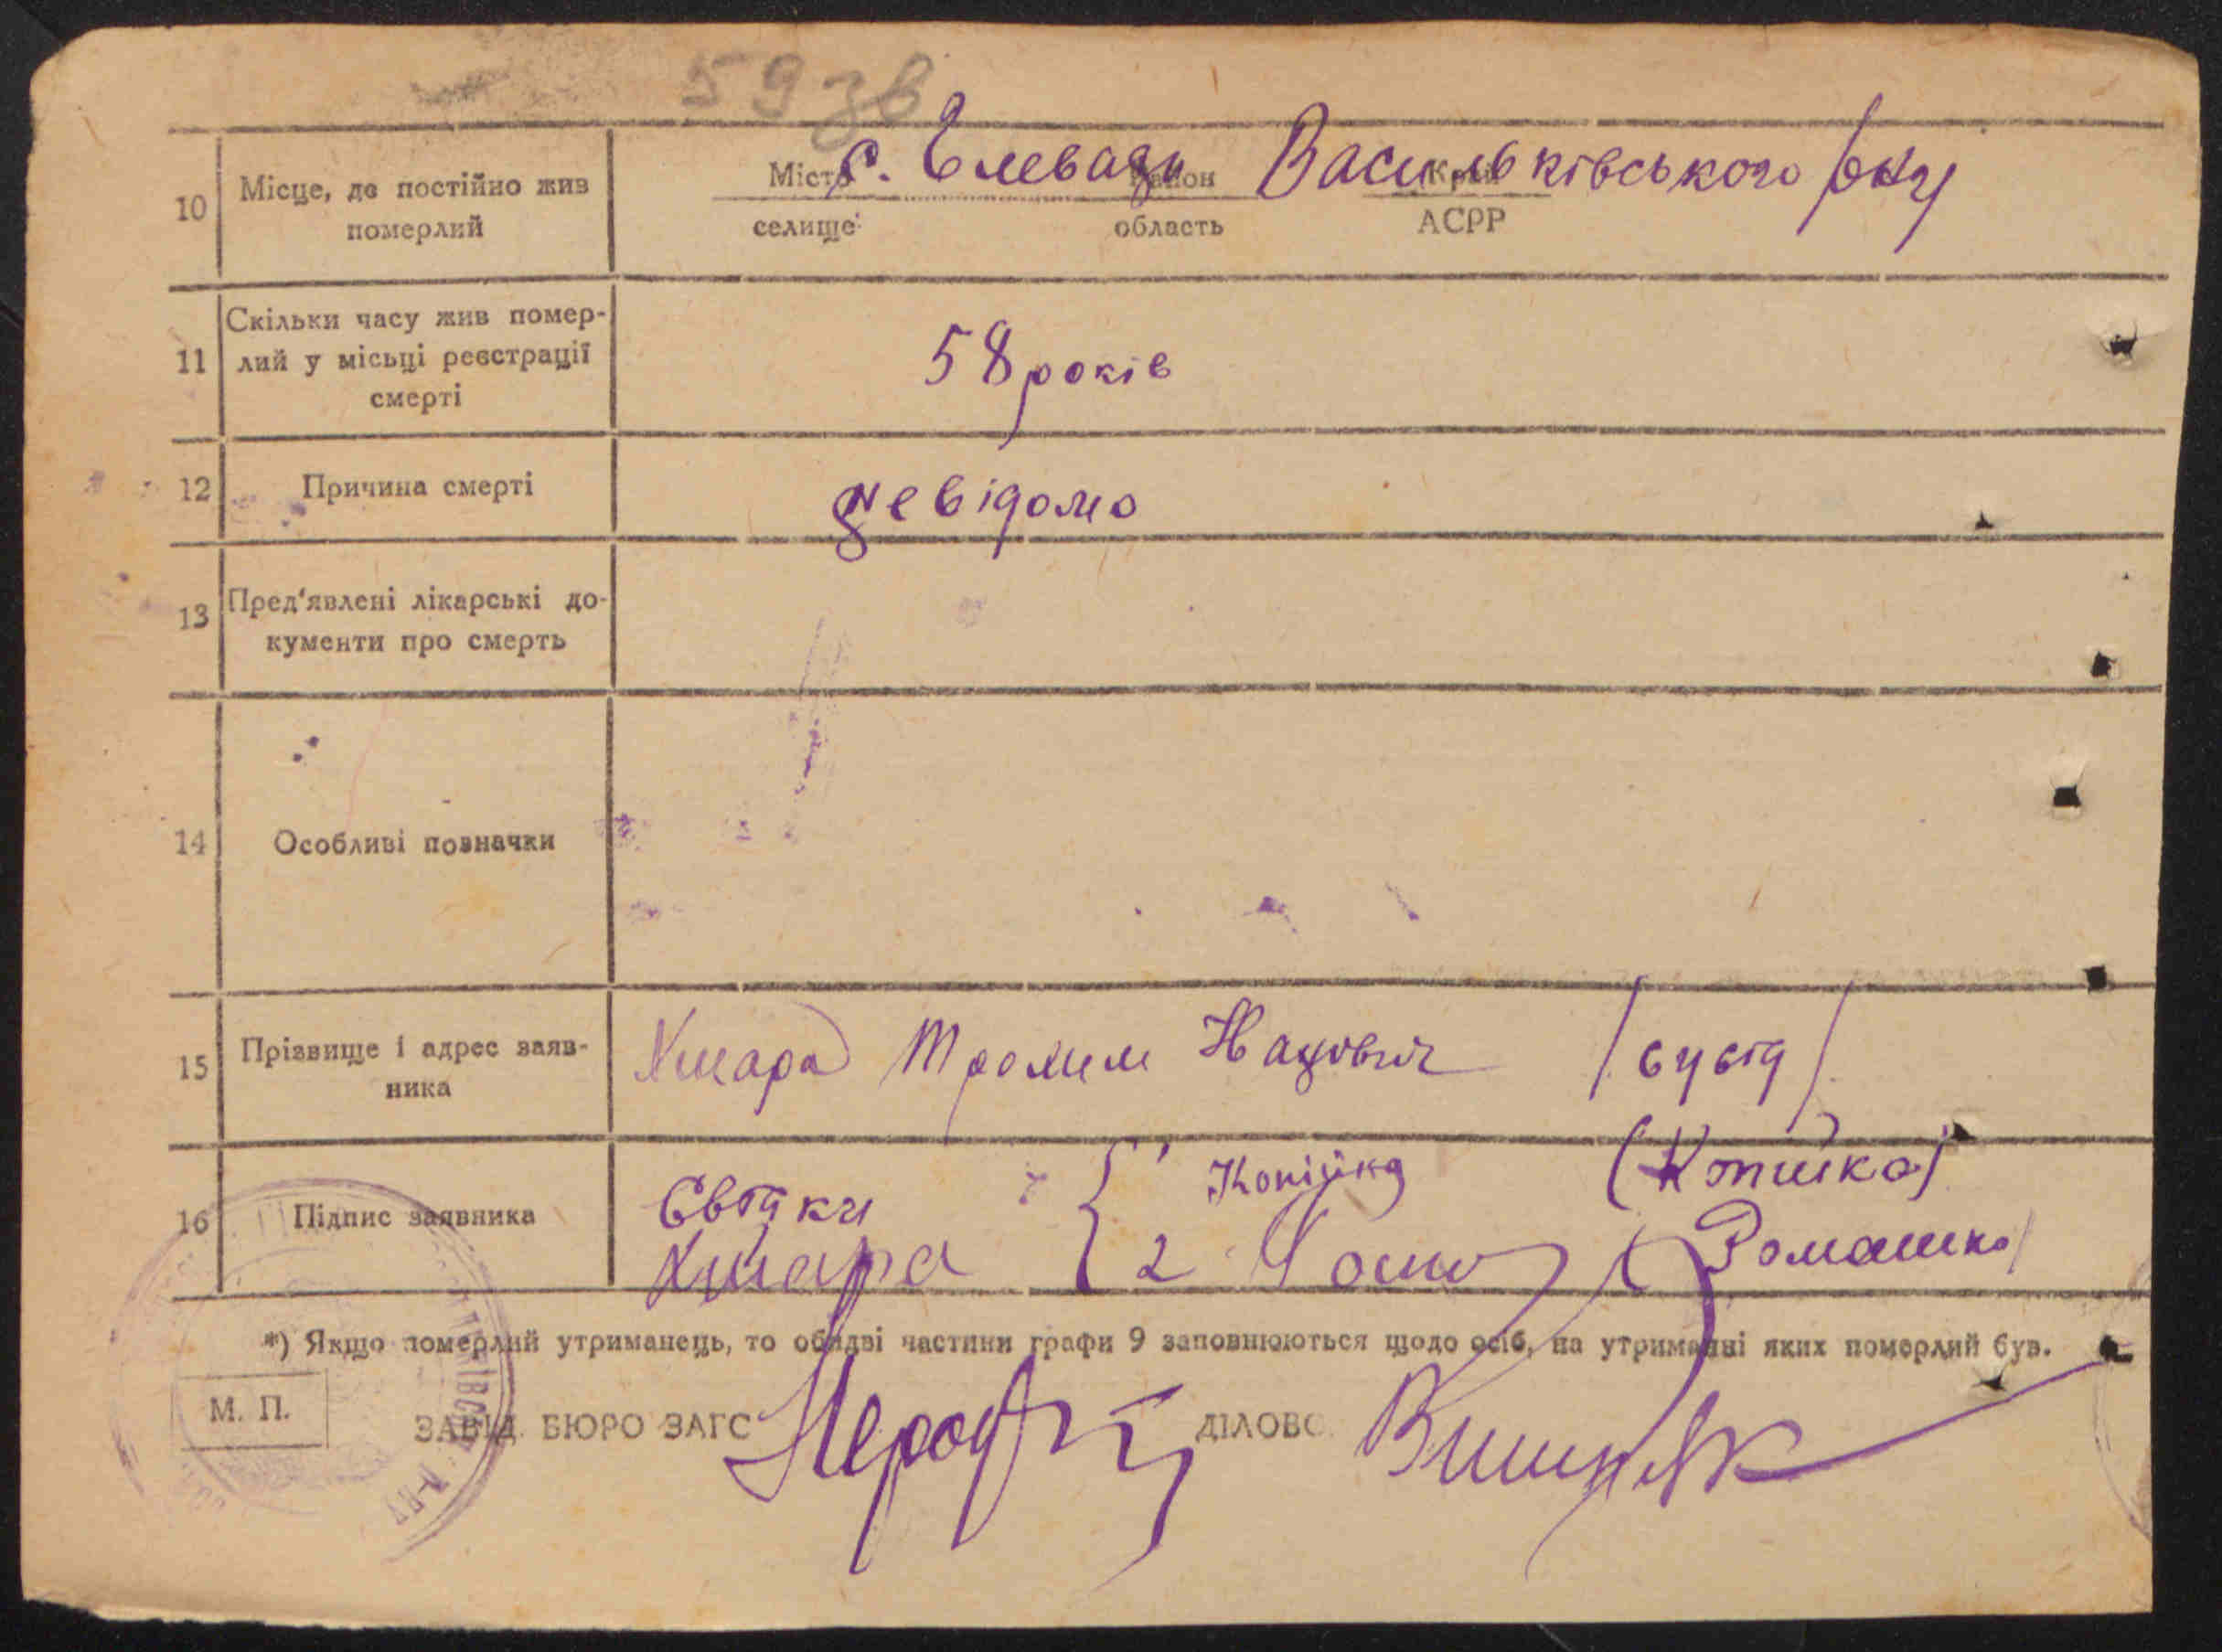 59 зв
10 Місце, де постійно жив померлий
Місто с. Єлеваха район Васильківського р-ну Край
селище область АСРР
11 Скільки часу жив помер-
лий у місьці реєстрації
смерті
58 років
12 Причина смерті
невідомо
13 Пред'явлені лікарські до-
кументи про смерть
14 Особливі позначки
15 Прізвище і адрес заяв-
ника
Хмара Трохим Нацович /сусід/
16 Підпис заявника
Свідки 1 Копійка (Копійка)
Хмара 2 (Ромашко)
*) Якщо померлий утриманець, то обидві частини графи 9 заповнюються щодо осіб, на утриманні яких померлий був.
М. П.
ЗАВІД. БЮРО ЗАГС
ДІЛОВОД